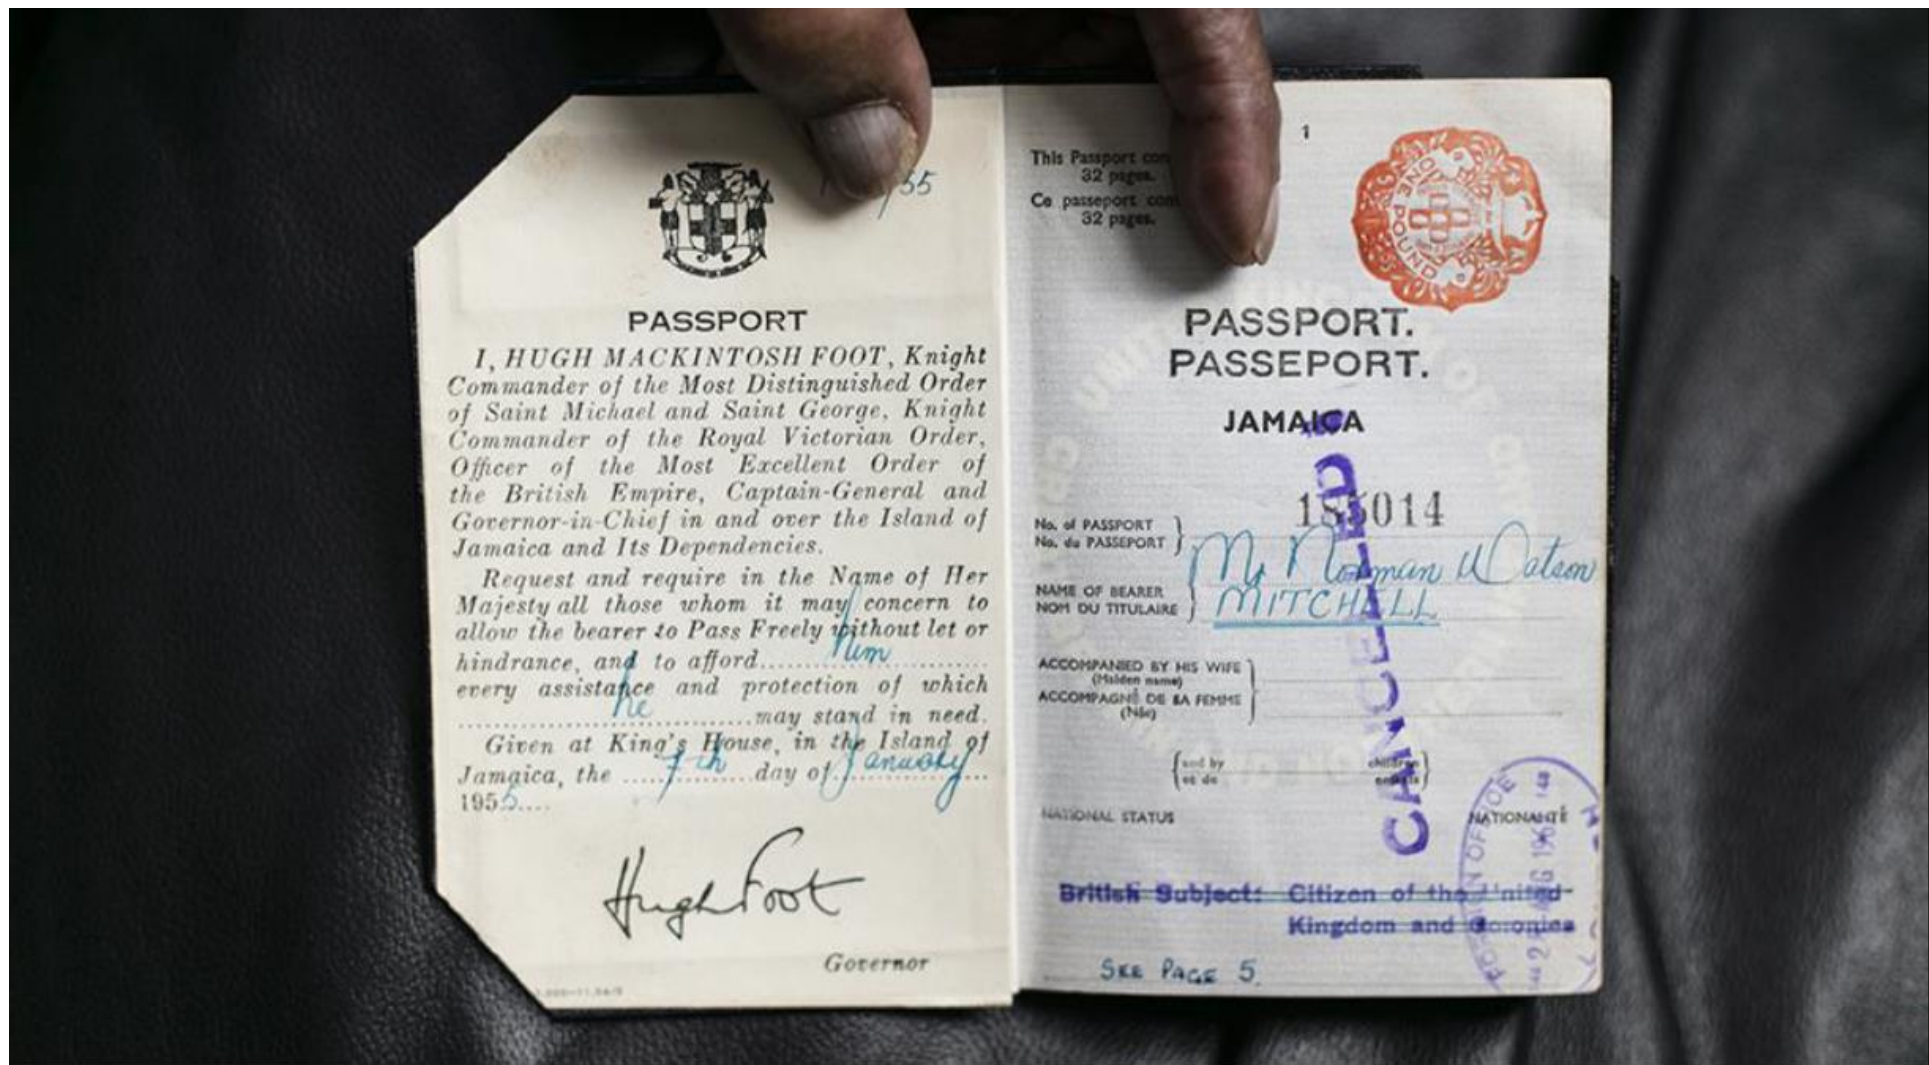 /55
PASSPORT
I, HUGH MACKINTOSH FOOT, Knight
Commander of the Most Distinguished Order
of Saint Michael and Saint George, Knight
Commander of the Royal Victorian Order,
Officer of the Most Excellent Order of
the British Empire, Captain-General and
Governor-in-Chief in and over the Island of
Jamaica and Its Dependencies.
Request and require in the Name of Her
Majesty all those whom it may concern to
allow the bearer to Pass Freely without let or
hindrance, and to afford.....him.....
every assistance and protection of which
.....he.....may stand in need.
Given at King's House, in the Island of
Jamaica, the ...7th... day of January
1955....
Hugh Foot
Governor
1
This Passport
32 pages.
Ce passeport
32 pages.
ONE POUND
PASSPORT.
PASSEPORT.
JAMAICA
No. of PASSPORT
No. du PASSEPORT
NAME OF BEARER
NOM DU TITULAIRE
Mr Norman Watson
MITCHELL
ACCOMPANIED BY HIS WIFE
(Maiden name)
ACCOMPAGNÉ DE SA FEMME
(Née)
and by children
et de enfants
NATIONAL STATUS NATIONALITÉ
CANCELLED
British Subject: Citizen of the United
Kingdom and Colonies
SEE PAGE 5.
FOREIGN OFFICE